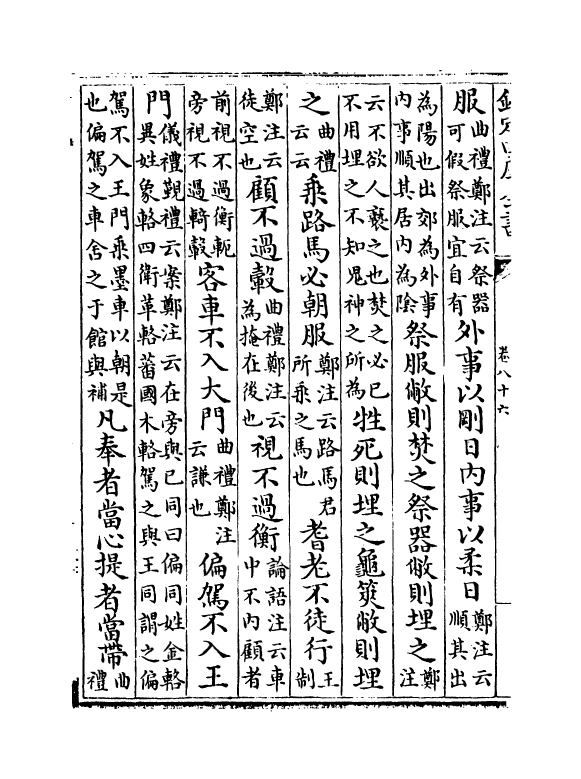 欽定四庫全書 卷八十六
服曲禮鄭注云祭器可假祭服宜自有外事以剛日内事以柔日鄭注云順其出
為陽也出郊為外事内事順其居内為陰祭服敝則焚之祭器敝則埋之鄭注
云不欲人褻之也焚之必已不用埋之不知鬼神之所為牲死則埋之龜筴敝則埋
之曲禮云云乘路馬必朝服鄭注云路馬君所乘之馬也耆老不徒行王制
鄭注云徒空也顧不過轂曲禮鄭注云為掩在後也視不過衡論語注云車中不内顧者
前視不過衡軛旁視不過輢轂客車不入大門曲禮鄭注云謙也偏駕不入王
門儀禮覲禮云案鄭注云在旁與已同曰偏同姓金輅異姓象輅四衛革輅蕃國木輅駕之與王同謂之偏
駕不入王門乘墨車以朝是也偏駕之車舍之于館與補凡奉者當心提者當帶曲禮